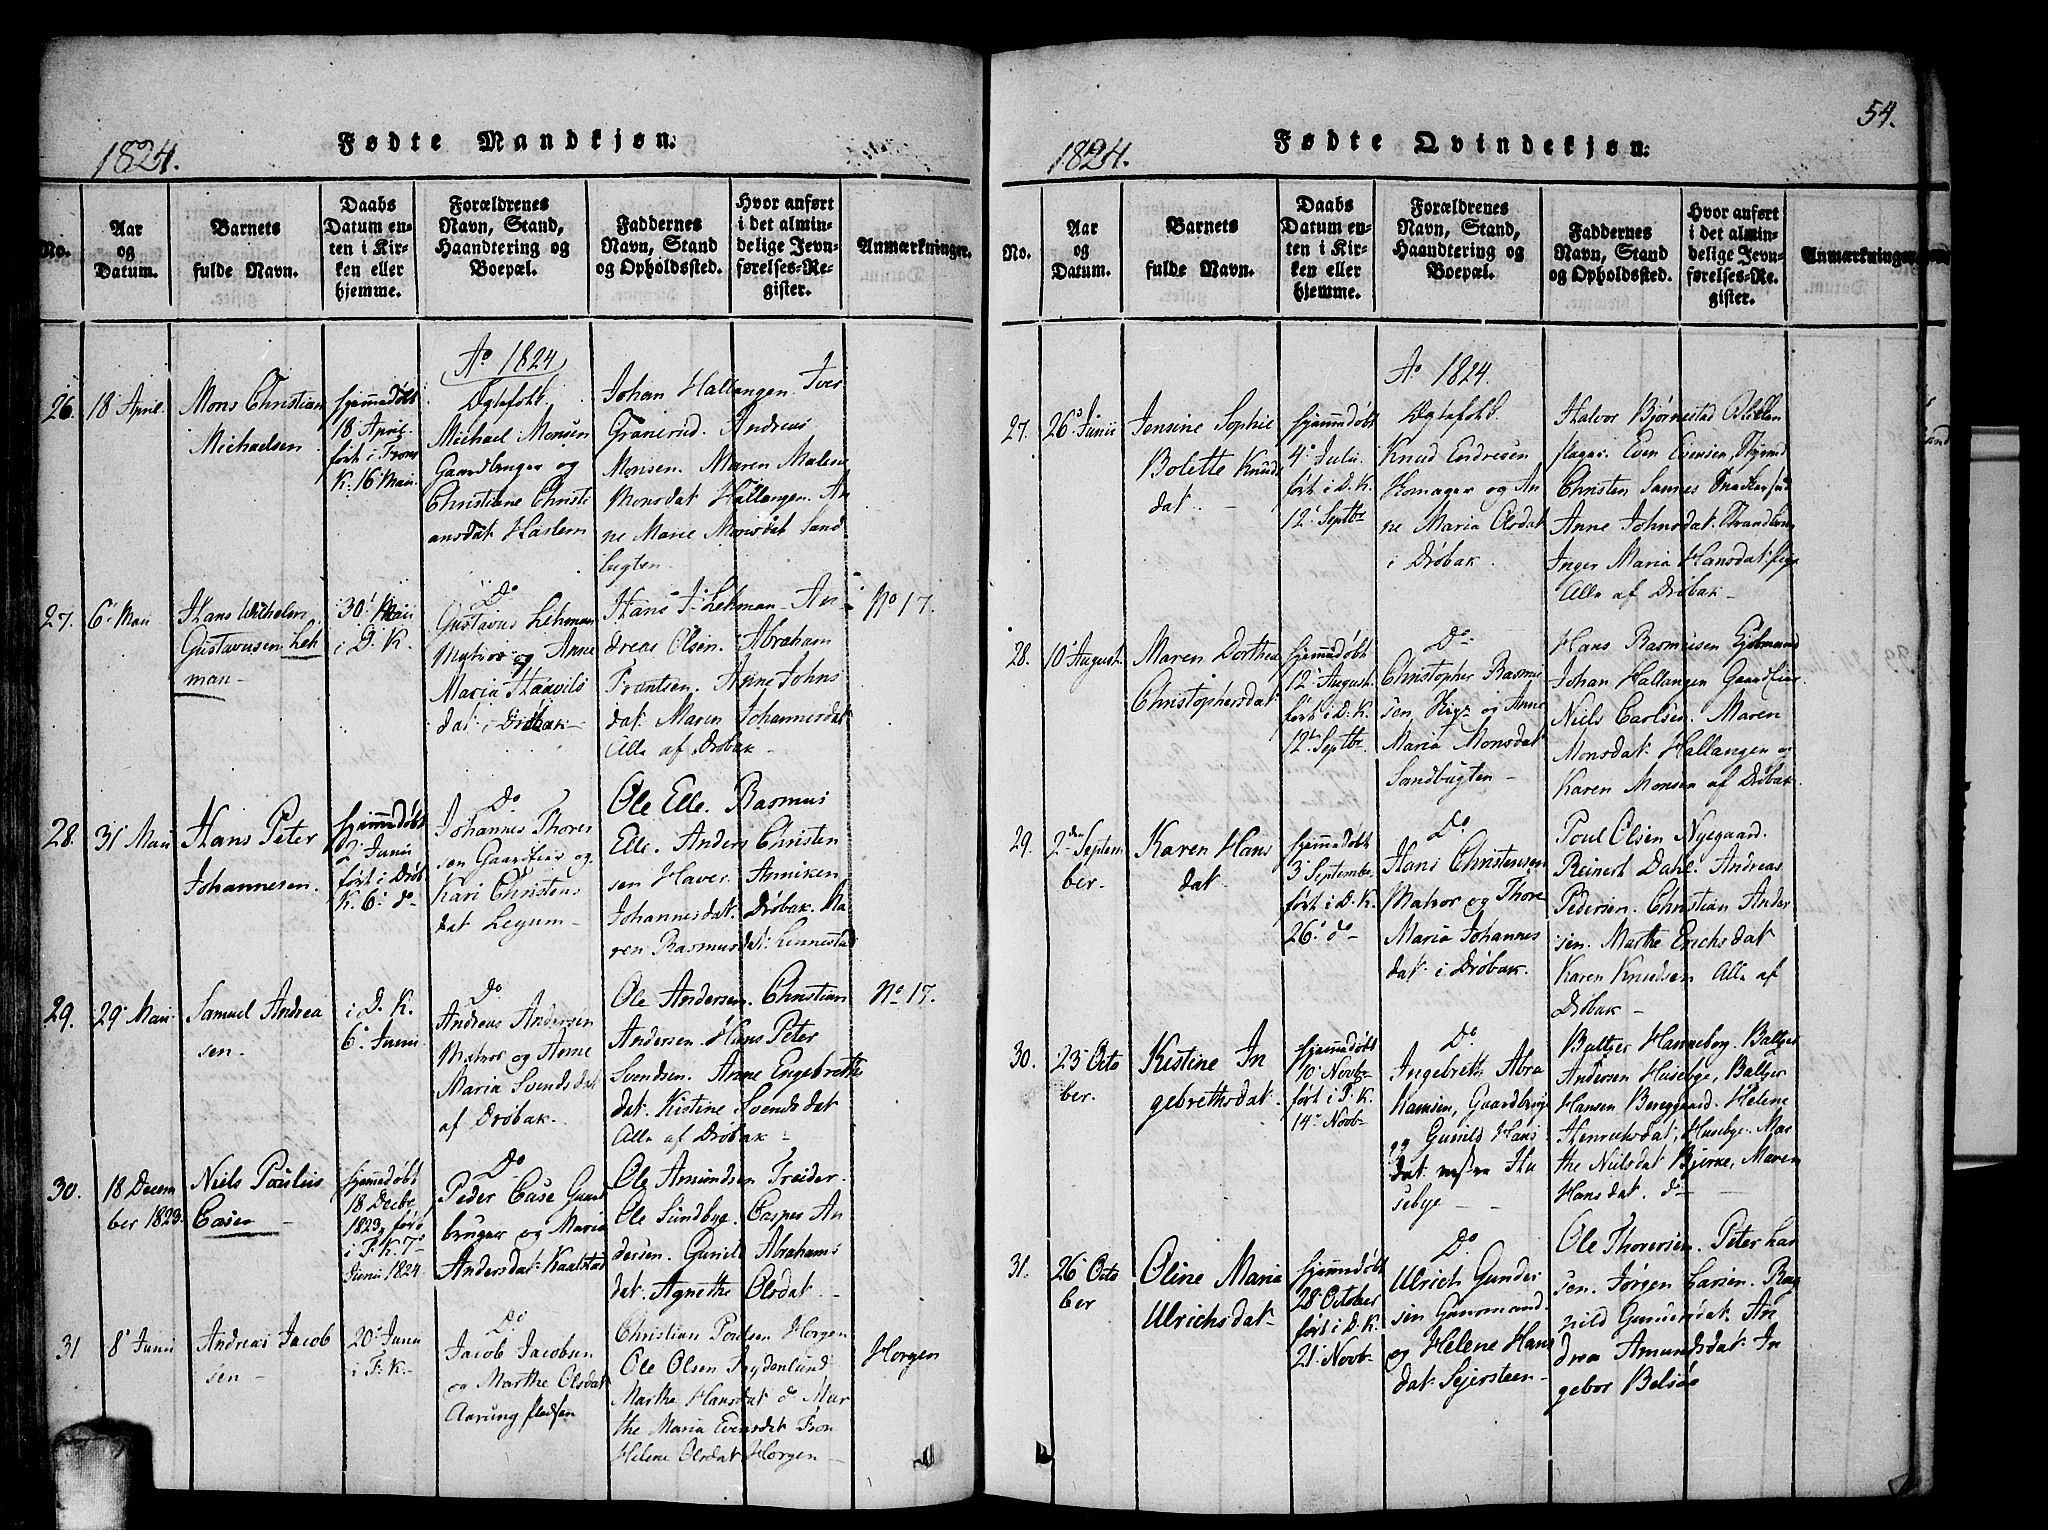 1824.
Fødte Mandkjøn.
No.
Aar
og
Datum.
Barnets
fulde Navn.
Daabs
Datum en-
ten i Kir-
ken eller
hjemme.
Forældrenes
Navn, Stand,
Haandtering og
Boepæl.
Faddernes
Navn, Stand
og Opholdssted.
Hvor anført
i det almin-
delige Jevn-
førelses-Re-
gister.
Anmærkninger.
26.
18' April.
Mons Christian
Michaelsen
hjemmedøbt
18 April.
ført i Frons
K. 16 Maii.
Ao 1824
Ægtefolk.
Michael Monsen
Gaardbruger og
Christiane Christi
ansdat Haslem
Johan Hallangen Iver
Granerud. Andreas
Monsen. Maren Malene
Monsdat Hallangen. An
ne Marie Monsdat Sand
bugten
27.
6' Maii
Hans Wilhelm
Gustavusen Leh
man
30' Maii
i D. K.
Do
Gustavus Lehman
Matros og Anne
Maria Haavils
dat. i Drøbak
Hans J. Lehman - An
dreas Olsen. Abraham
Frantsen. Anne Johns
dat. Maren Johannesdat
Alle af Drøbak -
No 17.
28.
31 Maii
Hans Peter
Johannesen.
hjemmedøbt
2' Junii
ført i Drøb
K. 6' do
Do
Johannes Thores
sen Gaardfeier og
Kari Christens
dat Legum
Ole Elle. Rasmus
Elle. Anders Christen
sen Haver Anniken
Johannesdat. Drøbak. Ma
ren Rasmusdat. Lennestad
29.
29' Maii
Samuel Andrea
sen
i D. K.
6' Junii
Do
Andreas Andersen
Matros og Anne
Maria Svendsdat
af Drøbak.
Ole Andersen. Christian
Andersen. Hans Peter
Svendsen. Anne Engebreths
dat. Kistine Svendsdat
Alle af Drøbak
No. 17.
30.
18 Decem
ber 1823.
Niels Paulus
Casen
hjemmedøbt
18 Decbr
1823, ført
i F. K. 7'
Junii 1824
Do
Peder Case Gaard
bruger og Maria
Andersdat. Kaatstad
Ole Amundsen Treider.
Ole Sundbye. Casper An
dersen. Gunild Abrahams
dat. Agnethe Olsdat.
31
8' Junii
Andreas Jacob
sen
20' Junii
i F. K.
Do
Jacob Jacobsen
og Marthe Olsdat
Aarung pladsen
Christian Poulsen Horgen
Ole Olsen Frydenlund
Marthe Hansdat do Mar
the Maria Evensdat Fron
Helene Olsdat Horgen
Horgen
54.
1824.
Fødte Qvindekjøn:
No.
Aar
og
Datum.
Barnets
fulde Navn.
Daabs
Datum en-
ten i Kir-
ken eller
hjemme.
Forældrenes
Navn, Stand,
Haandtering og
Boepæl.
Faddernes
Navn, Stand
og Opholdssted.
Hvor anført
i det almin-
delige Jevn-
førelses-Re-
gister.
Anmærkninger
27.
26' Junii
Jensine Sophie
Bolette Knuds
dat.
hjemmedøbt
4' Julii
ført i D. K.
12' Septbr
Ao 1824.
Ægtefolk
Knud Endresen
Homager og An
ne Maria Olsdat
i Drøbak.
Halvor Bjørnestad
Even Evensen,
Christen Sannes Snedkersvend
Anne Johnsdat.
Inger Maria Hansdat. pige
Alle af Drøbak
28.
10' August.
Maren Dorthea
Christophersdat
hjemmedøbt
12' August
ført i D. K.
12' Septbr
Do
Christopher Rasmus
sen og Anne
Maria Monsdat
Sandbugten -
Hans Rasmusen
Johan Hallangen Gaardfeier
Niels Carlsen. Maren
Monsdat. Hallangen og
Karen Monsen af Drøbak.
29.
2den Septem
ber.
Karen Hans
dat.
hjemmedøbt
3' Septembr
ført i D. K.
26' do
Do
Hans Christensen
Matros og Thore
Maria Johannes
dat. i Drøbak.
Poul Olsen Nyegaard.
Reinert Dahl. Andreas
Pedersen. Christian Ander
sen. Marthe Erichsdat
Karen Knudsen Alle af
Drøbak
30.
23' Octo
ber.
Kistine In
gebrethsdat.
hjemmedøbt
10' Novbr
ført i F. K.
14' Novbr
Do
Angebreth Abra
hamsen, Gaardbruge
og Gunild Hans
dat. vestre Hu
sebye
Baltzer Hanneborg. Baltzer
Andersen Husebye, Baltzer
Hansen Berggaard. Helene
Henrichsdat. Husebye. Mar
the Nielsdat Bjerke, Maren
Hansdat. do
31.
26' Octo
ber
Oline Maria
Ulrichsdat
hjemmedøbt
28' October
ført i D. K.
21' Novbr
Do
Ulrich Gunder
sen Huusmand
og Helene Hans
dat Sejersteen
Ole Thoresen. Peter Lar
sen. Jørgen Larsen. Rag
nild Gundersdat. An
drea Amundsdat. In
gebor Belsøe